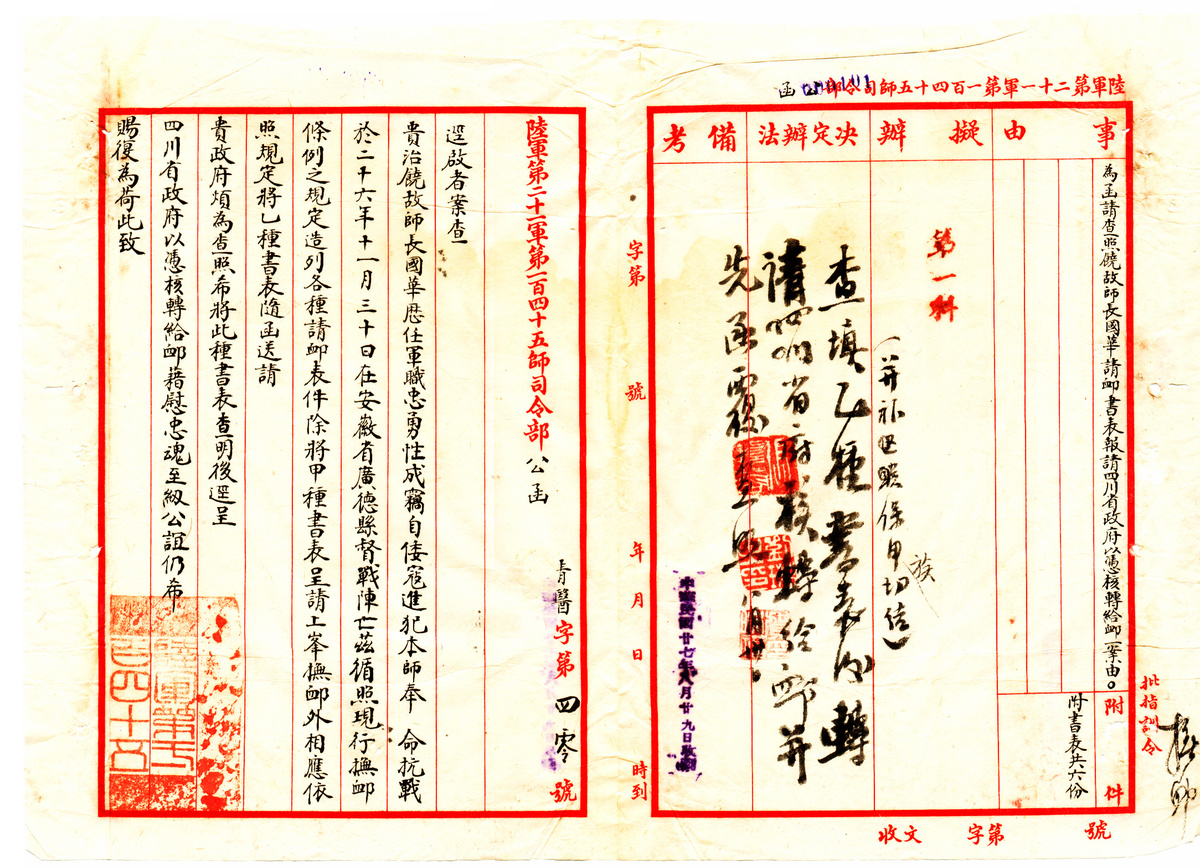 陸軍第二十一軍第一百四十五師司令部公函
事由
擬辦
決定辦法
備考
為函請查照饒故師長國華請卹書表報請四川省政府以憑核轉給卹一案由。
附件
附書表共六份
批指訓令
第一科
(并补
保甲切结)
族
查填乙種書表
轉
請四川省府核轉给卹并
先函覆查照 八月卅
字第 號
年 月 日 時到
中華民國廿七年八月廿九日收到
收文 字第 號
陸軍第二十一軍第一百四十五師司令部公函
青醫字第四零號
逕啟者案查
貴治饒故師長國華歷任軍職忠勇性成竊自倭寇進犯本師奉 命抗戰
於二十六年十一月三十日在安徽省廣德縣督戰陣亡茲循照現行撫卹
條例之規定造列各種請卹表件除將甲種書表呈請上峯撫卹外相應依
照規定將乙種書表隨函送請
貴政府煩為查照希將此種書表查明後逕呈
四川省政府以憑核轉給卹藉慰忠魂至紉公誼仍希
賜復為荷此致